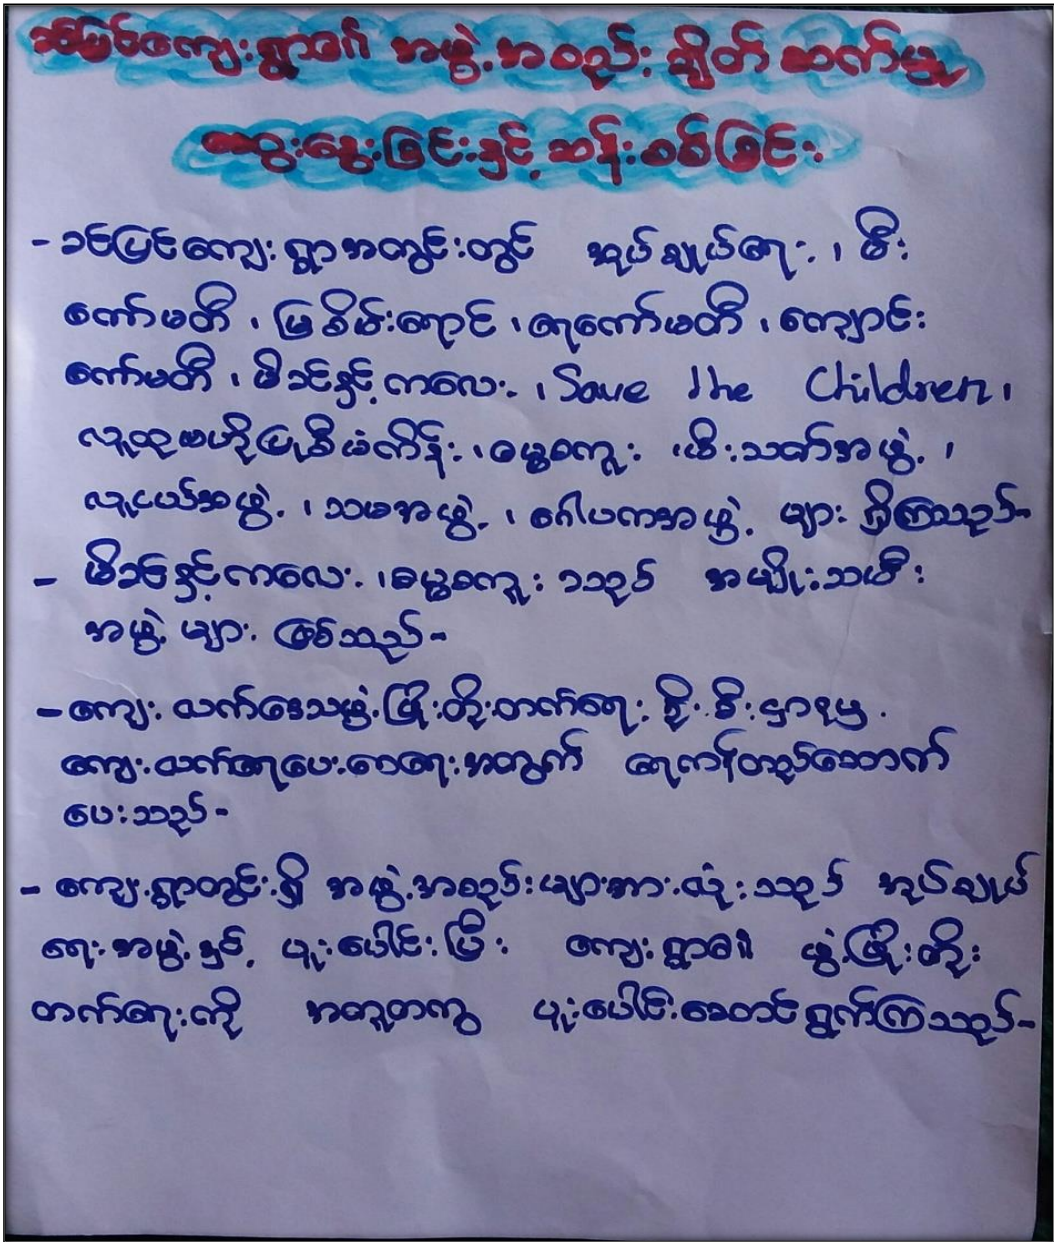 ခင်ပြင်ကျေးရွာ၏ အဖွဲ့အစည်း ချိတ်ဆက်မှု
ဆွေးနွေးခြင်းနှင့် ဆန်းစစ်ခြင်း
- ခင်ပြင်ကျေးရွာအတွင်းတွင် အုပ်ချုပ်ရေး ၊ မီး
ကော်မတီ ၊ မြစိမ်းရောင် ၊ ရေကော်မတီ ၊ ကျောင်း
ကော်မတီ ၊ မိခင်နှင့်ကလေး ၊ Save the Children ၊
လူထုဗဟိုပြုစီမံကိန်း ၊ ဓမ္မစကူး ၊ မီးသတ်အဖွဲ့ ၊
လူငယ်အဖွဲ့ ၊ သာမအဖွဲ့ ၊ ဂေါပကအဖွဲ့ များ ရှိကြသည်-
- မိခင်နှင့်ကလေး ၊ ဓမ္မစကူး သည် အမျိုးသမီး
အဖွဲ့ များ ဖြစ်သည်-
- ကျေးလက်ဒေသဖွံ့ဖြိုးတိုးတက်ရေး ဦးစီးဌာနမှ
ကျေးလက်ရေပေးဝေရေးအတွက် ရေကန်တည်ဆောက်
ပေးသည်-
- ကျေးရွာတွင်းရှိ အဖွဲ့အစည်းများအားလုံး သည် အုပ်ချုပ်
ရေးအဖွဲ့နှင့် ပူးပေါင်းပြီး ကျေးရွာ၏ ဖွံ့ဖြိုးတိုး
တက်ရေးကို အတူတကွ ပူးပေါင်းဆောင်ရွက်ကြသည်-